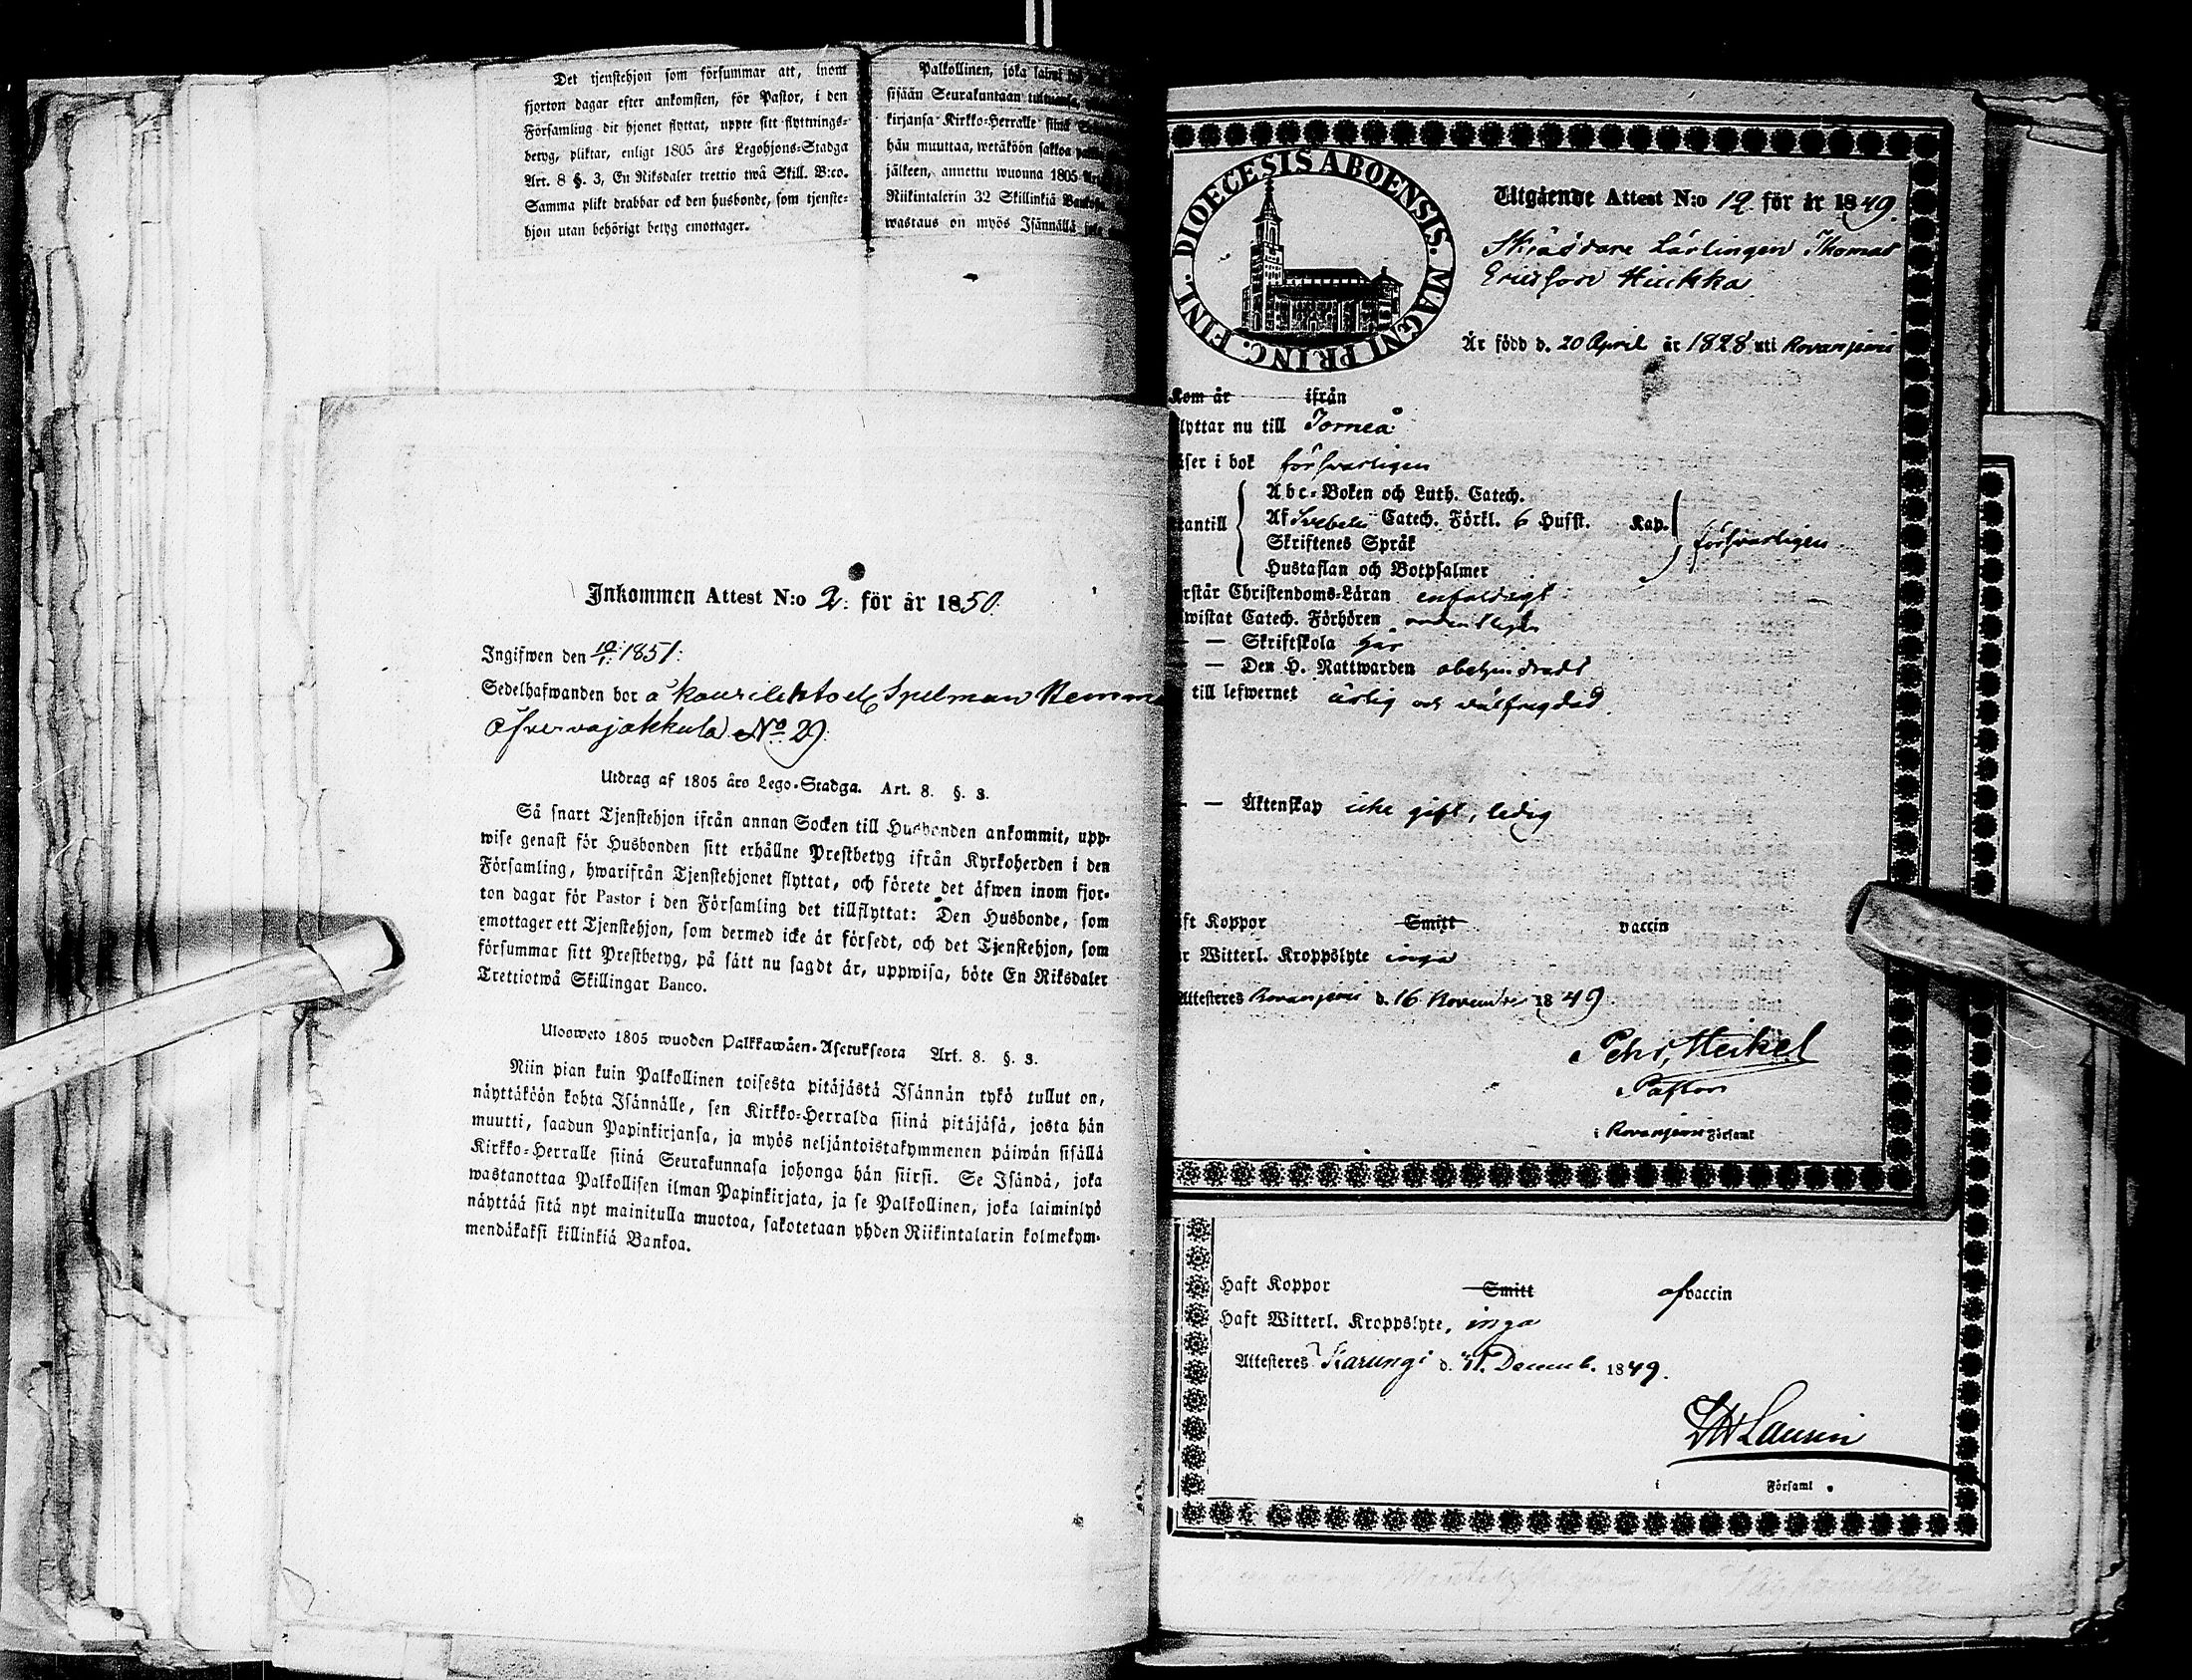 Det tjenstehjon som försummar att, inom
fjorton dagar efter ankomsten, för Pastor, i den
Församling dit hjonet flyttat, uppte sitt flyttnings-
betyg, pliktar, enligt 1805 års Legohjons-Stadga
Art. 8 §. 3, En Riksdaler trettio twå Skill. B:co.
Samma plikt drabbar ock den husbonde, som tjenste-
hjon utan behörigt betyg emottager.
Palkollinen, joka
sisään Seurakuntaan
kirjansa Kirkko-Herralle siinä
hän muuttaa, wetäköön sakkoa
jälkeen, annettu wuonna 1805
Riikintalerin 32 Skillinkiä
wastaus on myös Isännällä
Inkommen Attest N:o 2. för år 1850.
Ingifwen den 10/1. 1851.
Sedelhafwanden bor å Spelman
Öfvervojakkula No 29.
Utdrag af 1805 års Lego-Stadga. Art. 8. §. 3.
Så snart Tjenstehjon ifrån annan Socken till Husbonden ankommit, upp-
wise genast för Husbonden sitt erhållne Prestbetyg ifrån Kyrkoherden i den
Församling, hwarifrån Tjenstehjonet flyttat, och förete det äfwen inom fjor-
ton dagar för Pastor i den Församling det tillflyttat: Den Husbonde, som
emottager ett Tjenstehjon, som dermed icke är försedt, och det Tjenstehjon, som
försummar sitt Prestbetyg, på sätt nu sagdt är, uppwisa, böte En Riksdaler
Trettiotwå Skillingar Banco.
Ulosweto 1805 wuoden Palkkawäen-Asetuksesta Art. 8. §. 3.
Niin pian kuin Palkollinen toisesta pitäjästä Isännän tykö tullut on,
näyttäköön kohta Isännälle, sen Kirkko-Herralda siinä pitäjäsä, josta hän
muutti, saadun Papinkirjansa, ja myös neljäntoistakymmenen päiwän sisällä
Kirkko-Herralle siinä Seurakunnasa johonga hän siirsi. Se Isändä, joka
wastanottaa Palkollisen ilman Papinkirjata, ja se Palkollinen, joka laiminlyö
näyttää sitä nyt mainitulla muotoa, sakotetaan yhden Riikintalarin kolmekym-
mendäkaksi killinkiä Bankoa.
DIOECESIS ABOENSIS. MAGNI PRINC. FINL.
Utgående Attest N:o 12. för år 1849.
Skräddare Lärlingen Thomas
Ericsson Hiukka
Är född d. 20 April år 1828 uti Rovanjemi
Kom år ifrån
lyttar nu till Torneå
äser i bok försvarligen
Abc-Boken och Luth. Catech.
tantill Af Svebelii Catech. Förkl. 6 Hufst. Kap. försvarligen
Skriftenes Språk
Hustaflan och Botpsalmer
rstår Christendoms-Läran enfaldigt
wistat Catech. Förhören ordentligen
— — Skriftskola här
— — Den H. Nattwarden obehindradt
till lefwernet ärlig och välfregdad.
— — Äktenskap icke gift, ledig
ft Koppor Smitt vaccin
r Witterl. Kroppslyte inga
Attesteras Rovanjemi d. 16 November 1849
Pehr Heikel
Pastor
i Rovanjemi Församl
Haft Koppor Smitt af vaccin
Haft Witterl. Kroppslyte, inga
Attesteres Karungi d. 31. Decemb. 1849.
Laurin
i Församl.